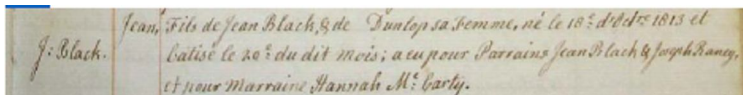 Jean, Fils de Jean Black, & de Dunlop sa Femme, né le 18.e d'Octre 1813 et
J: Black. batisé le 20.e du dit mois; a eu pour Parrains Jean Black & Joseph Raney,
et pour Marraine Hannah Mc. Carty.